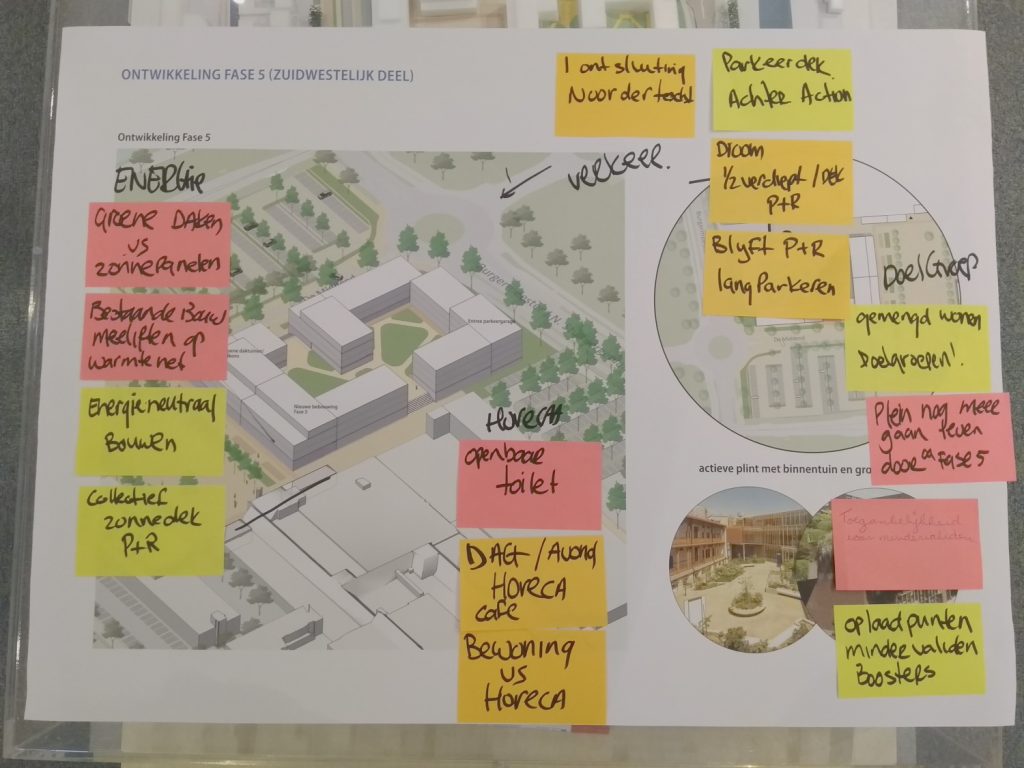 ONTWIKKELING FASE 5 (ZUIDWESTELIJK DEEL)
Ontwikkeling Fase 5
ENERGIE
GROENE DAKEN
VS
ZONNEPANELEN
Bestaande Bouw
meeliften op
warmtenet
Energieneutraal
Bouwen
Collectief
zonnedek
P+R
1 ontsluiting
Noorder
verkeer.
Parkeerdek
Achter Action
Droom
1/2 verdiept / Dek
P+R
Blyft P+R
lang Parkeren
DoelGroep
gemengd wonen
Doelgroepen!
Plein nog meer
gaan leven
door Fase 5
Entree parkeergarage
Nieuwe bebouwing
Fase 5
HORECA
openbaar
toilet
DAG / Avond
HORECA
cafe
Bewoning
VS
HORECA
actieve plint met binnentuin en gro
Toegankelijkheid
voor mindervaliden
oplaadpunten
mindervaliden
Boosters